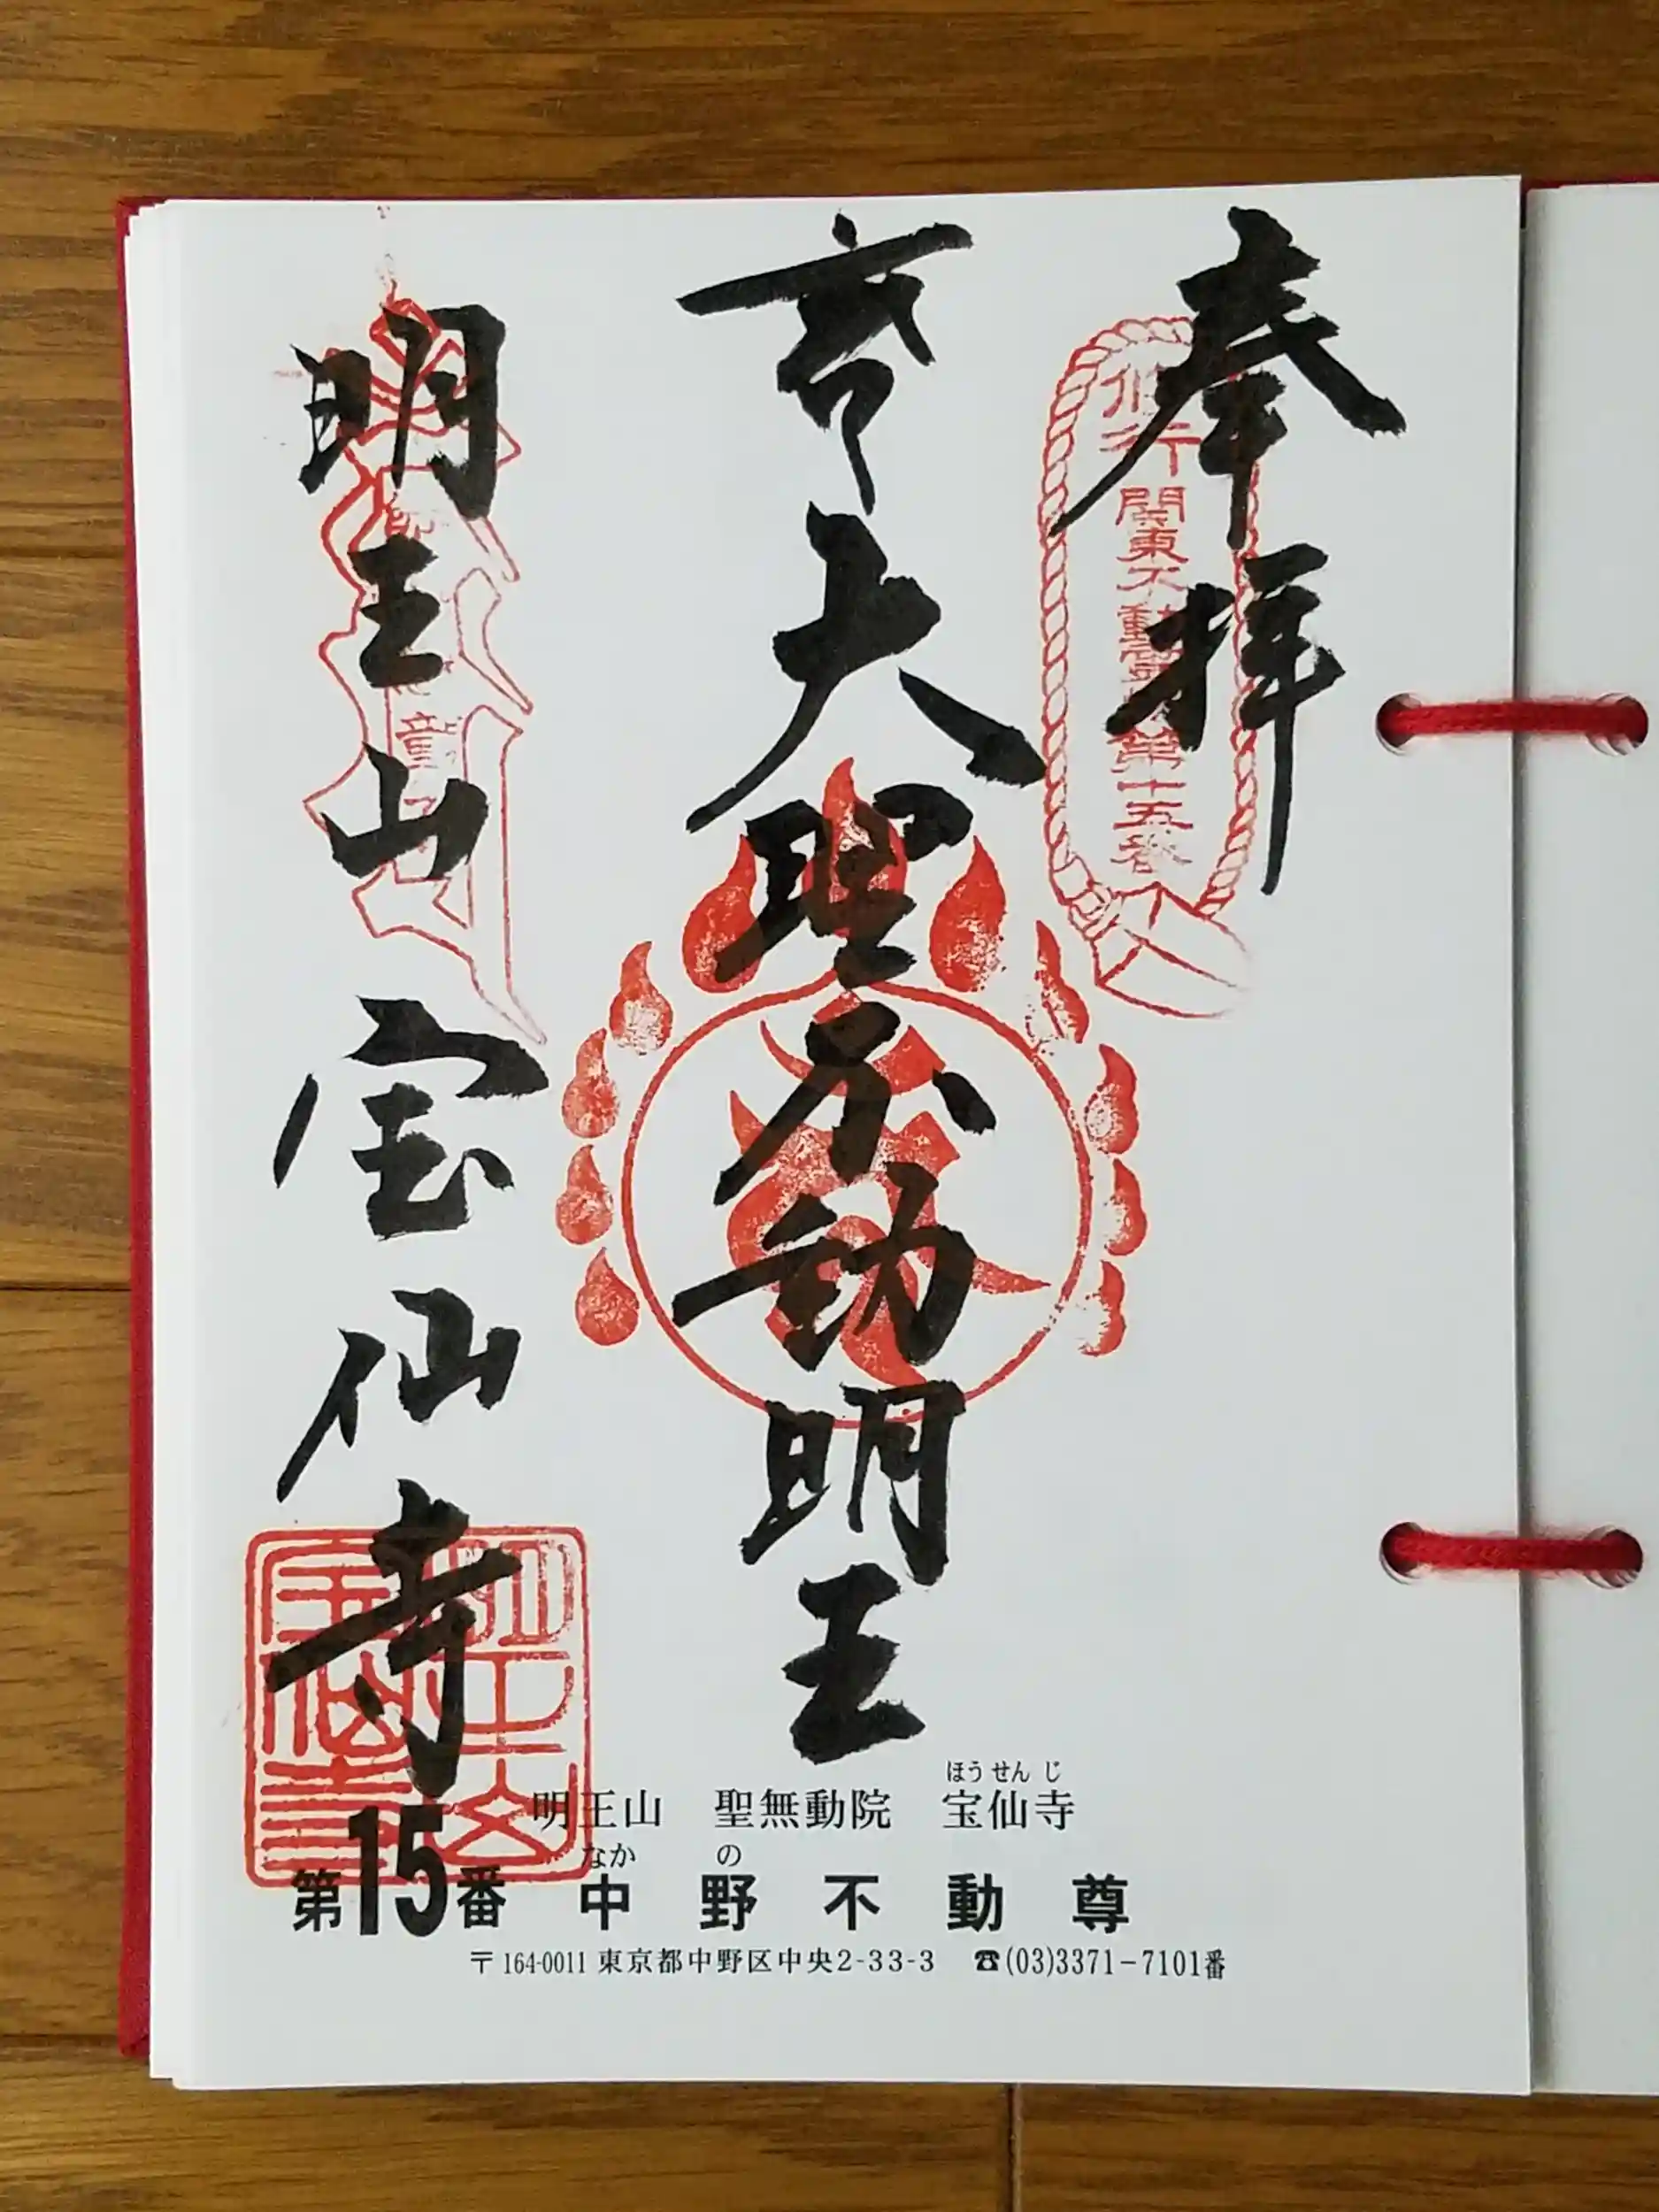 奉拝
行関東不動霊場第十五番
大聖不動明王
明王山
宝仙寺
童
明王山　聖無動院　宝仙寺
ほうせんじ
第15番　中野不動尊
なかの
〒164-0011 東京都中野区中央2-33-3　☎(03)3371-7101番